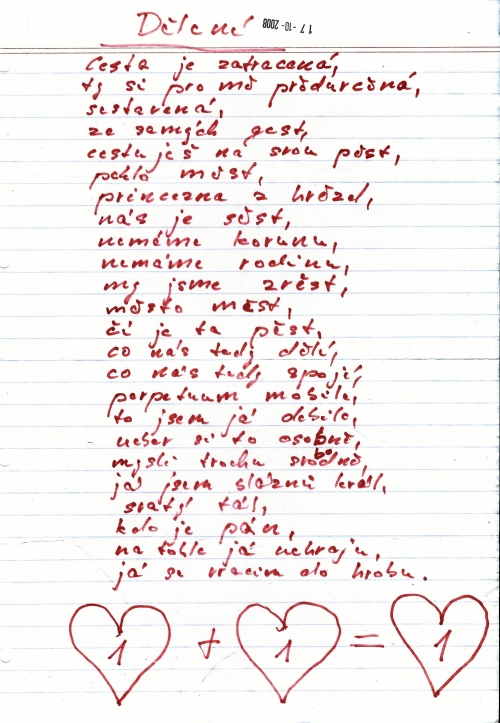 Dělení 17-10-2008
cesta je zatracená,
ty si pro mě předurčená,
sestavená,
ze samých gest,
cestuješ na svou pěst,
peklo měst,
princezna z hvězd,
nás je šest,
nemáme korunu,
nemáme rodinu,
my jsme zvěst,
město měst,
čí je ta pěst,
co nás tedy dělí,
co nás tedy spojí,
perpetuum mobile,
to jsem já debile,
neber si to osobně,
mysli trochu svobodně,
já jsem bláznů král,
svatý tál,
kdo je pán,
na tohle já nehraju,
já se vracím do hrobu.
1 + 1 = 1